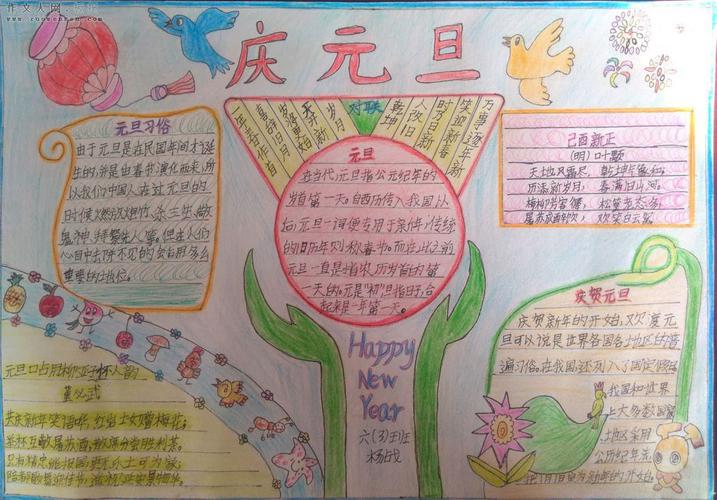 作文人网
www.zuowenren.com
庆元旦
元旦习俗
由于元旦是在民国年间才诞
生的,并是由春节演化而来,所
以我们中国人在过元旦的
时候燃放爆竹、杀三生、敬
鬼神、拜祭先人等。但在人们
重要的地位。
对联
岁月
笑迎新春
万事逐年新
元旦
在当代,元旦指公元纪年的
岁首第一天。自西历传入我国以
后,元旦一词便专用于新年,传统
的旧历年则称春节。而在此之前
元旦一直是指农历岁首的第
一天的。元是"初"旦指日子,合
起来是一年第一天。
己酉新正
(明)叶颙
天地风霜尽,乾坤气象和;
历添新岁月,春满旧山河。
梅柳芳容徲,松篁老态多;
屠苏成醉饮,欢笑白云窝。
庆贺元旦
庆贺新年的开始,欢度元
旦可以说是世界各国各地区的普
遍习俗。在我国还列入了国定假日
我国和世界
上大多数国家
地区采用
公历纪年法
把1月1日
为新年的开始。
元旦口占用柳亚子怀人韵
董必武
共庆新年笑语哗,红岩士女赠梅花;
举杯互敬屠苏酒,散席分尝胜利茶。
只有精忠能报国,更无乐土可为家;
Happy
New
Year
六(3)班
杨战